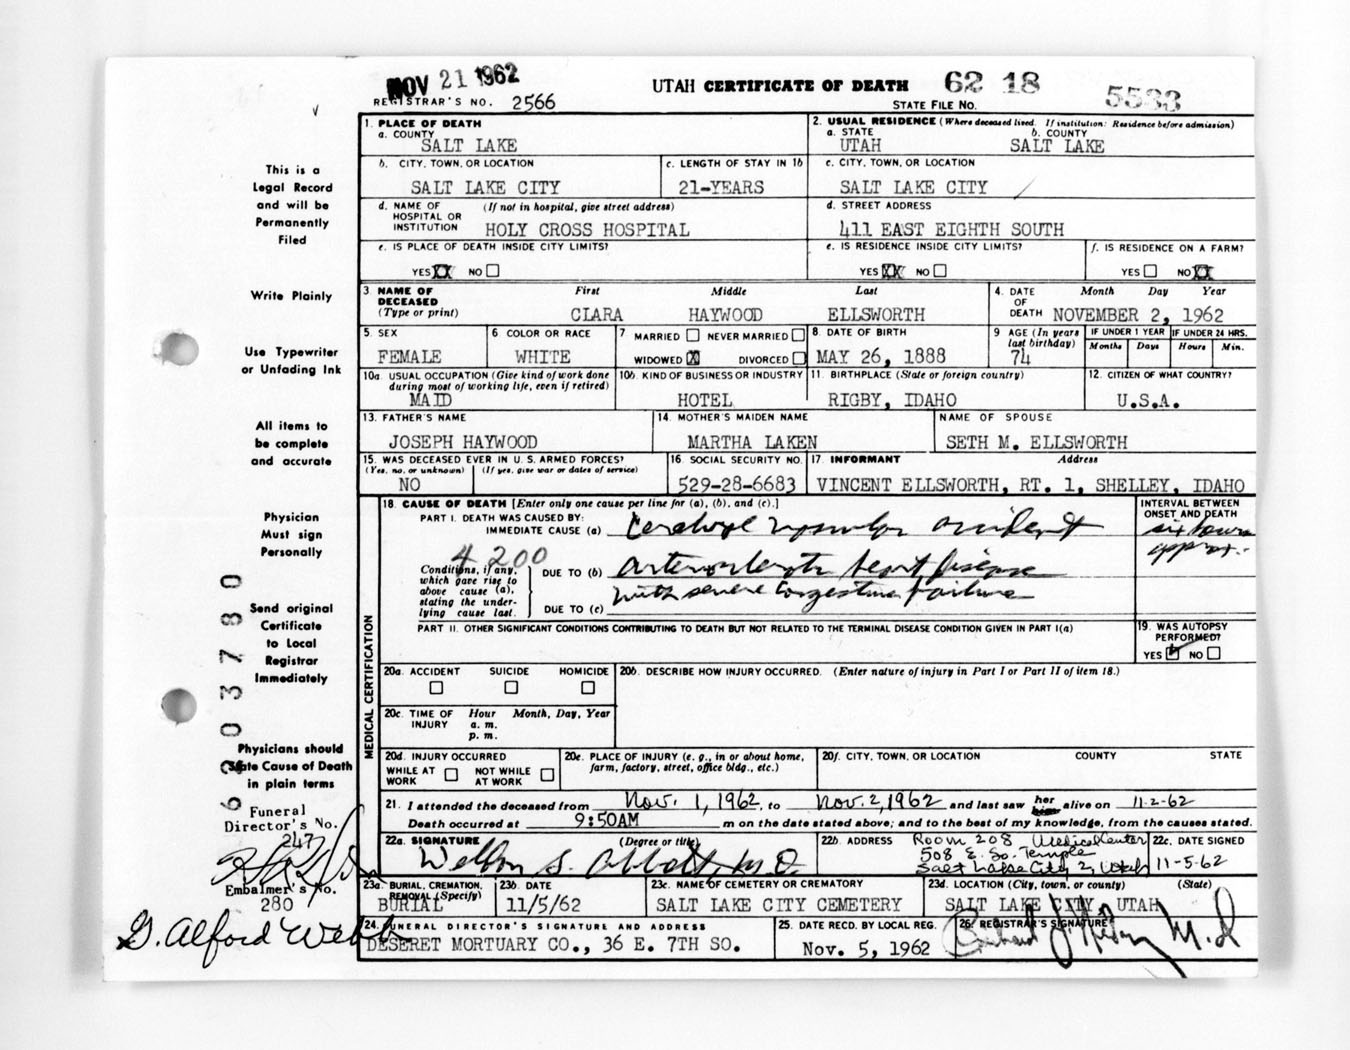 NOV 21 1962
UTAH CERTIFICATE OF DEATH 62 18
REGISTRAR'S NO. 2566
STATE FILE NO. 5533
1. PLACE OF DEATH
a. COUNTY
SALT LAKE
2. USUAL RESIDENCE (Where deceased lived. If institution: Residence before admission)
a. STATE b. COUNTY
UTAH SALT LAKE
b. CITY, TOWN, OR LOCATION
SALT LAKE CITY
c. LENGTH OF STAY IN 1b
21-YEARS
c. CITY, TOWN, OR LOCATION
SALT LAKE CITY
d. NAME OF HOSPITAL OR INSTITUTION (If not in hospital, give street address)
HOLY CROSS HOSPITAL
d. STREET ADDRESS
411 EAST EIGHTH SOUTH
e. IS PLACE OF DEATH INSIDE CITY LIMITS?
YES XX NO
e. IS RESIDENCE INSIDE CITY LIMITS?
YES XX NO
f. IS RESIDENCE ON A FARM?
YES NO XX
3. NAME OF DECEASED (Type or print)
First Middle Last
CLARA HAYWOOD ELLSWORTH
4. DATE OF DEATH
Month Day Year
NOVEMBER 2, 1962
5. SEX
FEMALE
6. COLOR OR RACE
WHITE
7. MARRIED NEVER MARRIED
WIDOWED X DIVORCED
8. DATE OF BIRTH
MAY 26, 1888
9. AGE (In years last birthday)
74
IF UNDER 1 YEAR
Months Days
IF UNDER 24 HRS.
Hours Min.
10a. USUAL OCCUPATION (Give kind of work done during most of working life, even if retired)
MAID
10b. KIND OF BUSINESS OR INDUSTRY
HOTEL
11. BIRTHPLACE (State or foreign country)
RIGBY, IDAHO
12. CITIZEN OF WHAT COUNTRY?
U.S.A.
13. FATHER'S NAME
JOSEPH HAYWOOD
14. MOTHER'S MAIDEN NAME
MARTHA LAKEN
NAME OF SPOUSE
SETH M. ELLSWORTH
15. WAS DECEASED EVER IN U. S. ARMED FORCES?
(Yes, no, or unknown) (If yes, give war or dates of service)
NO
16. SOCIAL SECURITY NO.
529-28-6683
17. INFORMANT Address
VINCENT ELLSWORTH, RT. 1, SHELLEY, IDAHO
18. CAUSE OF DEATH [Enter only one cause per line for (a), (b), and (c).]
INTERVAL BETWEEN ONSET AND DEATH
PART I. DEATH WAS CAUSED BY:
IMMEDIATE CAUSE (a) accident
six hours
approx.
4 200
Conditions, if any, which gave rise to above cause (a), stating the underlying cause last.
DUE TO (b) heart disease
with severe congestive failure
DUE TO (c)
PART II. OTHER SIGNIFICANT CONDITIONS CONTRIBUTING TO DEATH BUT NOT RELATED TO THE TERMINAL DISEASE CONDITION GIVEN IN PART I(a)
19. WAS AUTOPSY PERFORMED?
YES NO
MEDICAL CERTIFICATION
20a. ACCIDENT SUICIDE HOMICIDE
20b. DESCRIBE HOW INJURY OCCURRED. (Enter nature of injury in Part I or Part II of item 18.)
20c. TIME OF INJURY
Hour Month, Day, Year
a. m.
p. m.
20d. INJURY OCCURRED
WHILE AT WORK NOT WHILE AT WORK
20e. PLACE OF INJURY (e. g., in or about home, farm, factory, street, office bldg., etc.)
20f. CITY, TOWN, OR LOCATION COUNTY STATE
21. I attended the deceased from Nov. 1, 1962, to Nov. 2, 1962 and last saw her him alive on 11-2-62
Death occurred at 9:50AM m on the date stated above; and to the best of my knowledge, from the causes stated.
22a. SIGNATURE (Degree or title)
M.D.
22b. ADDRESS Room 208 Medical Center
508 E. So. Temple
Salt Lake City 2, Utah
22c. DATE SIGNED
11-5-62
23a. BURIAL, CREMATION, REMOVAL (Specify)
BURIAL
23b. DATE
11/5/62
23c. NAME OF CEMETERY OR CREMATORY
SALT LAKE CITY CEMETERY
23d. LOCATION (City, town, or county) (State)
SALT LAKE CITY, UTAH
24. FUNERAL DIRECTOR'S SIGNATURE AND ADDRESS
DESERET MORTUARY CO., 36 E. 7TH SO.
25. DATE RECD. BY LOCAL REG.
Nov. 5, 1962
26. REGISTRAR'S SIGNATURE
M.D
This is a
Legal Record
and will be
Permanently
Filed
Write Plainly
Use Typewriter
or Unfading Ink
All items to
be complete
and accurate
Physician
Must sign
Personally
Send original
Certificate
to Local
Registrar
Immediately
Physicians should
State Cause of Death
in plain terms
Funeral
Director's No.
247
Embalmer's No.
280
G. Alford Webb